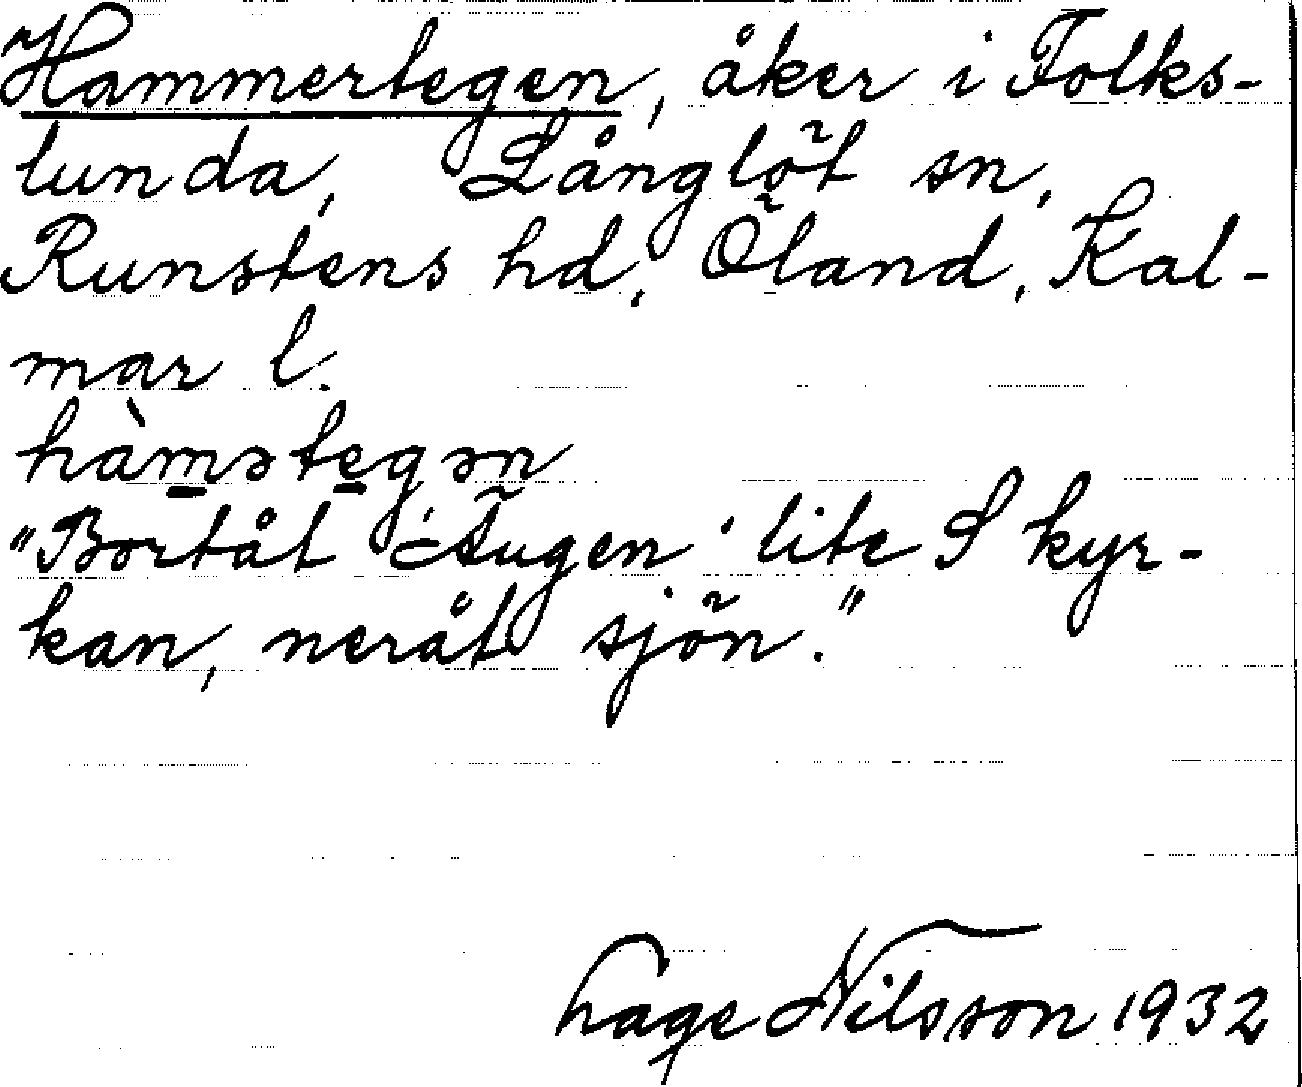 Hammertegen, åker i Folks-
lunda, Långlöt sn,
Runstens hd, Öland, Kal-
mar l.
hàm̲əte̲gən
"Bortåt 'Äugen' lite S kyr-
kan, neråt sjön."
Lage Nilsson 1932